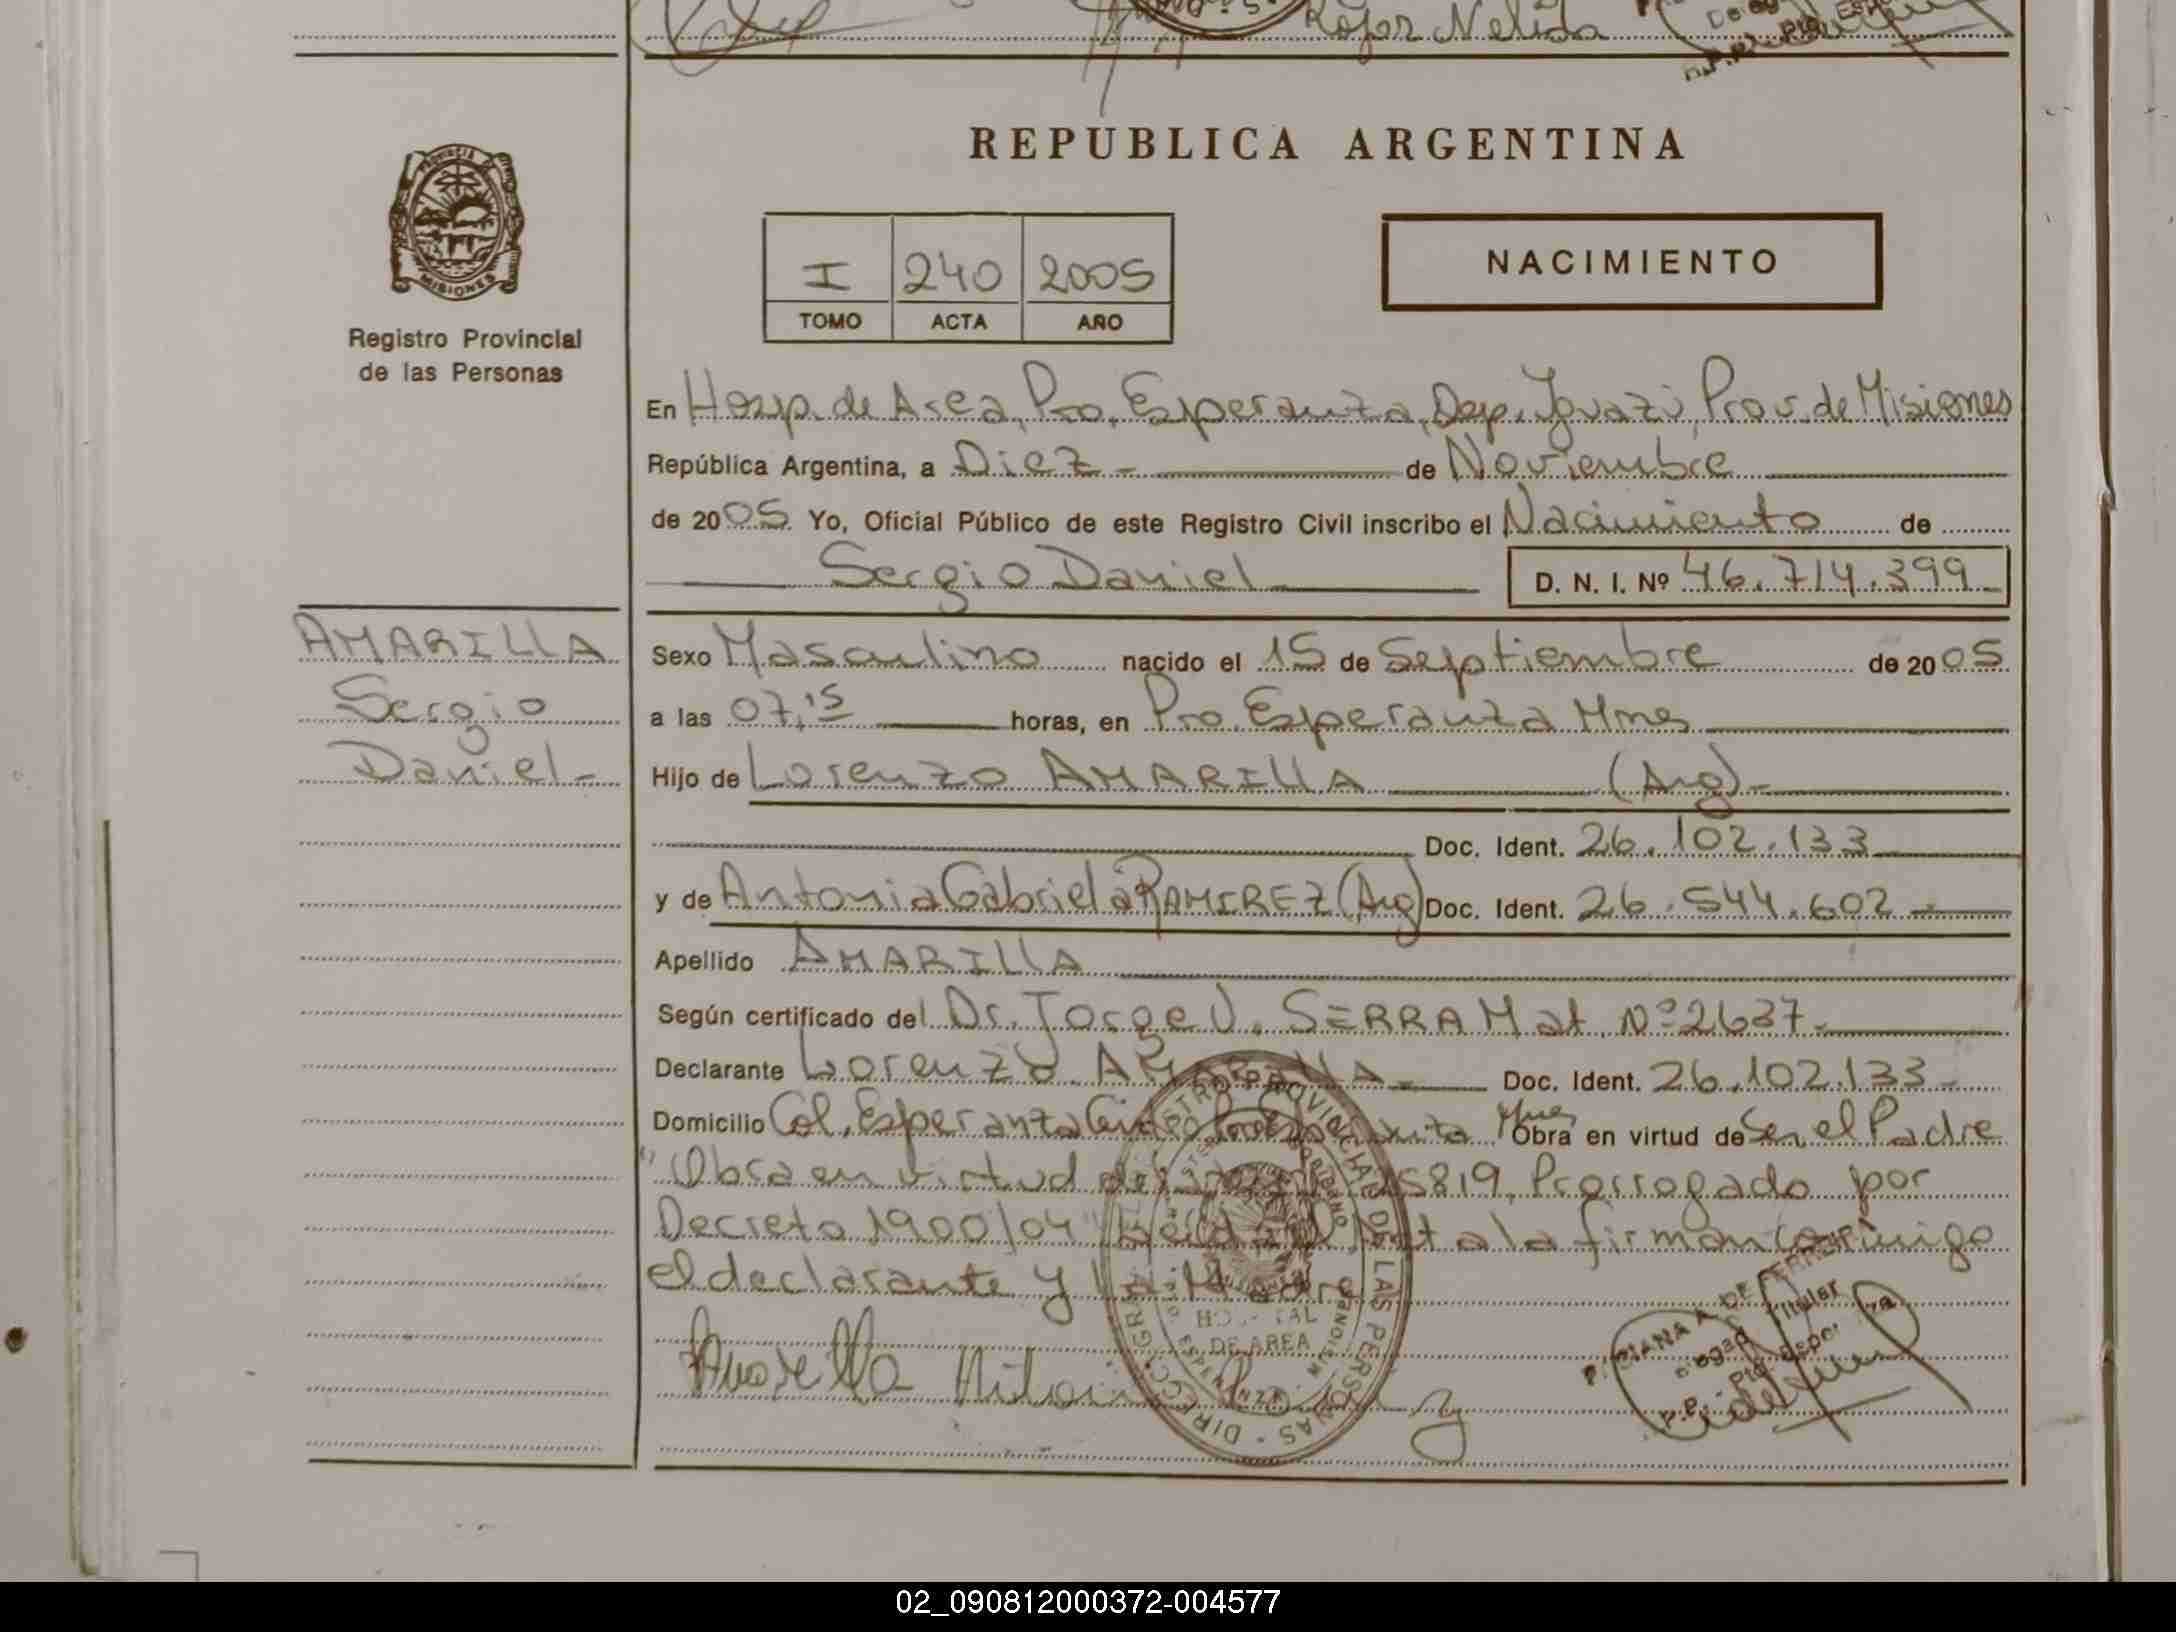 Rojas Nelida
REPUBLICA ARGENTINA
PROVINCIA DE
MISIONES
I 240 2005
TOMO ACTA AÑO
NACIMIENTO
Registro Provincial
de las Personas
En Hosp. de Area, Pto. Esperanza, Dep. Iguazú, Prov. de Misiones
República Argentina, a Diez - de Noviembre
de 2005 Yo, Oficial Público de este Registro Civil inscribo el Nacimiento de
Sergio Daniel D. N. I. Nº 46.714.399
AMARILLA
Sergio
Daniel -
Sexo Masculino nacido el 15 de Septiembre de 2005
a las 07,15 horas, en Pto. Esperanza Mnes
Hijo de Lorenzo AMARILLA (Arg) -
Doc. Ident. 26.102.133
y de Antonia Gabriela RAMIREZ (Arg) Doc. Ident. 26.544.602
Apellido AMARILLA
Según certificado del Dr. Jorge V. SERRA Mat. Nº 2637 -
Declarante Lorenzo AMARILLA - Doc. Ident. 26.102.133 -
Domicilio Col. Esperanza Mnes Obra en virtud de Ser el Padre
"Obra en virtud del 25819, Prorrogado por
Decreto 1900/04" acta la firman conmigo
el declarante y la Madre
HOSPITAL
DE AREA
02_090812000372-004577